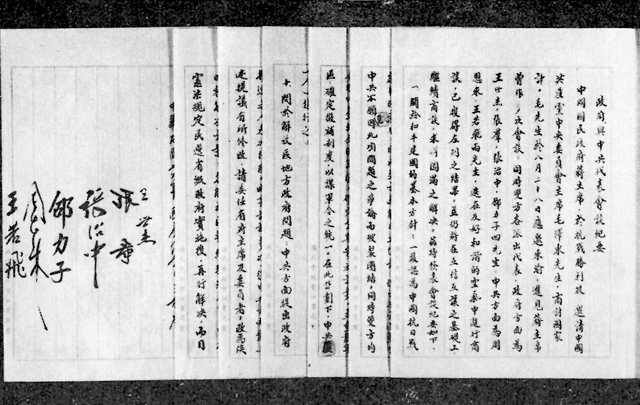 政府與中共代表會談紀要
中國國民政府蔣主席於抗戰勝利後，邀請中國
共產黨中央委員會主席毛澤東先生，商討國家
大計。毛先生於八月二十八日應邀來渝，進見蔣主席
曾作多次會談，同時雙方各派出代表，政府方面為
王世杰、張羣、張治中、邵力子四先生，中共方面為周
恩來、王若飛兩先生，迭在友好和諧的空氣中進行商
談，已獲得左列之結果，並仍將在互信互讓之基礎上
繼續商談，求得圓滿之解決。茲特發表會談紀要如下：
一、關於和平建國的基本方針：一致認為中國抗日戰
中共不願因此項問題之爭論而破裂團結，同時雙方均
區，確定徵補制度，以謀軍令之統一。在此計劃下，中共
十、關於解放區地方政府問題：中共方面提出政府
述提議有所修改，請委任省府主席及委員者，改為陝
憲法規定民選省級政府實施後，再行解決，而目
王世杰
張羣
張治中
邵力子
周恩來
王若飛